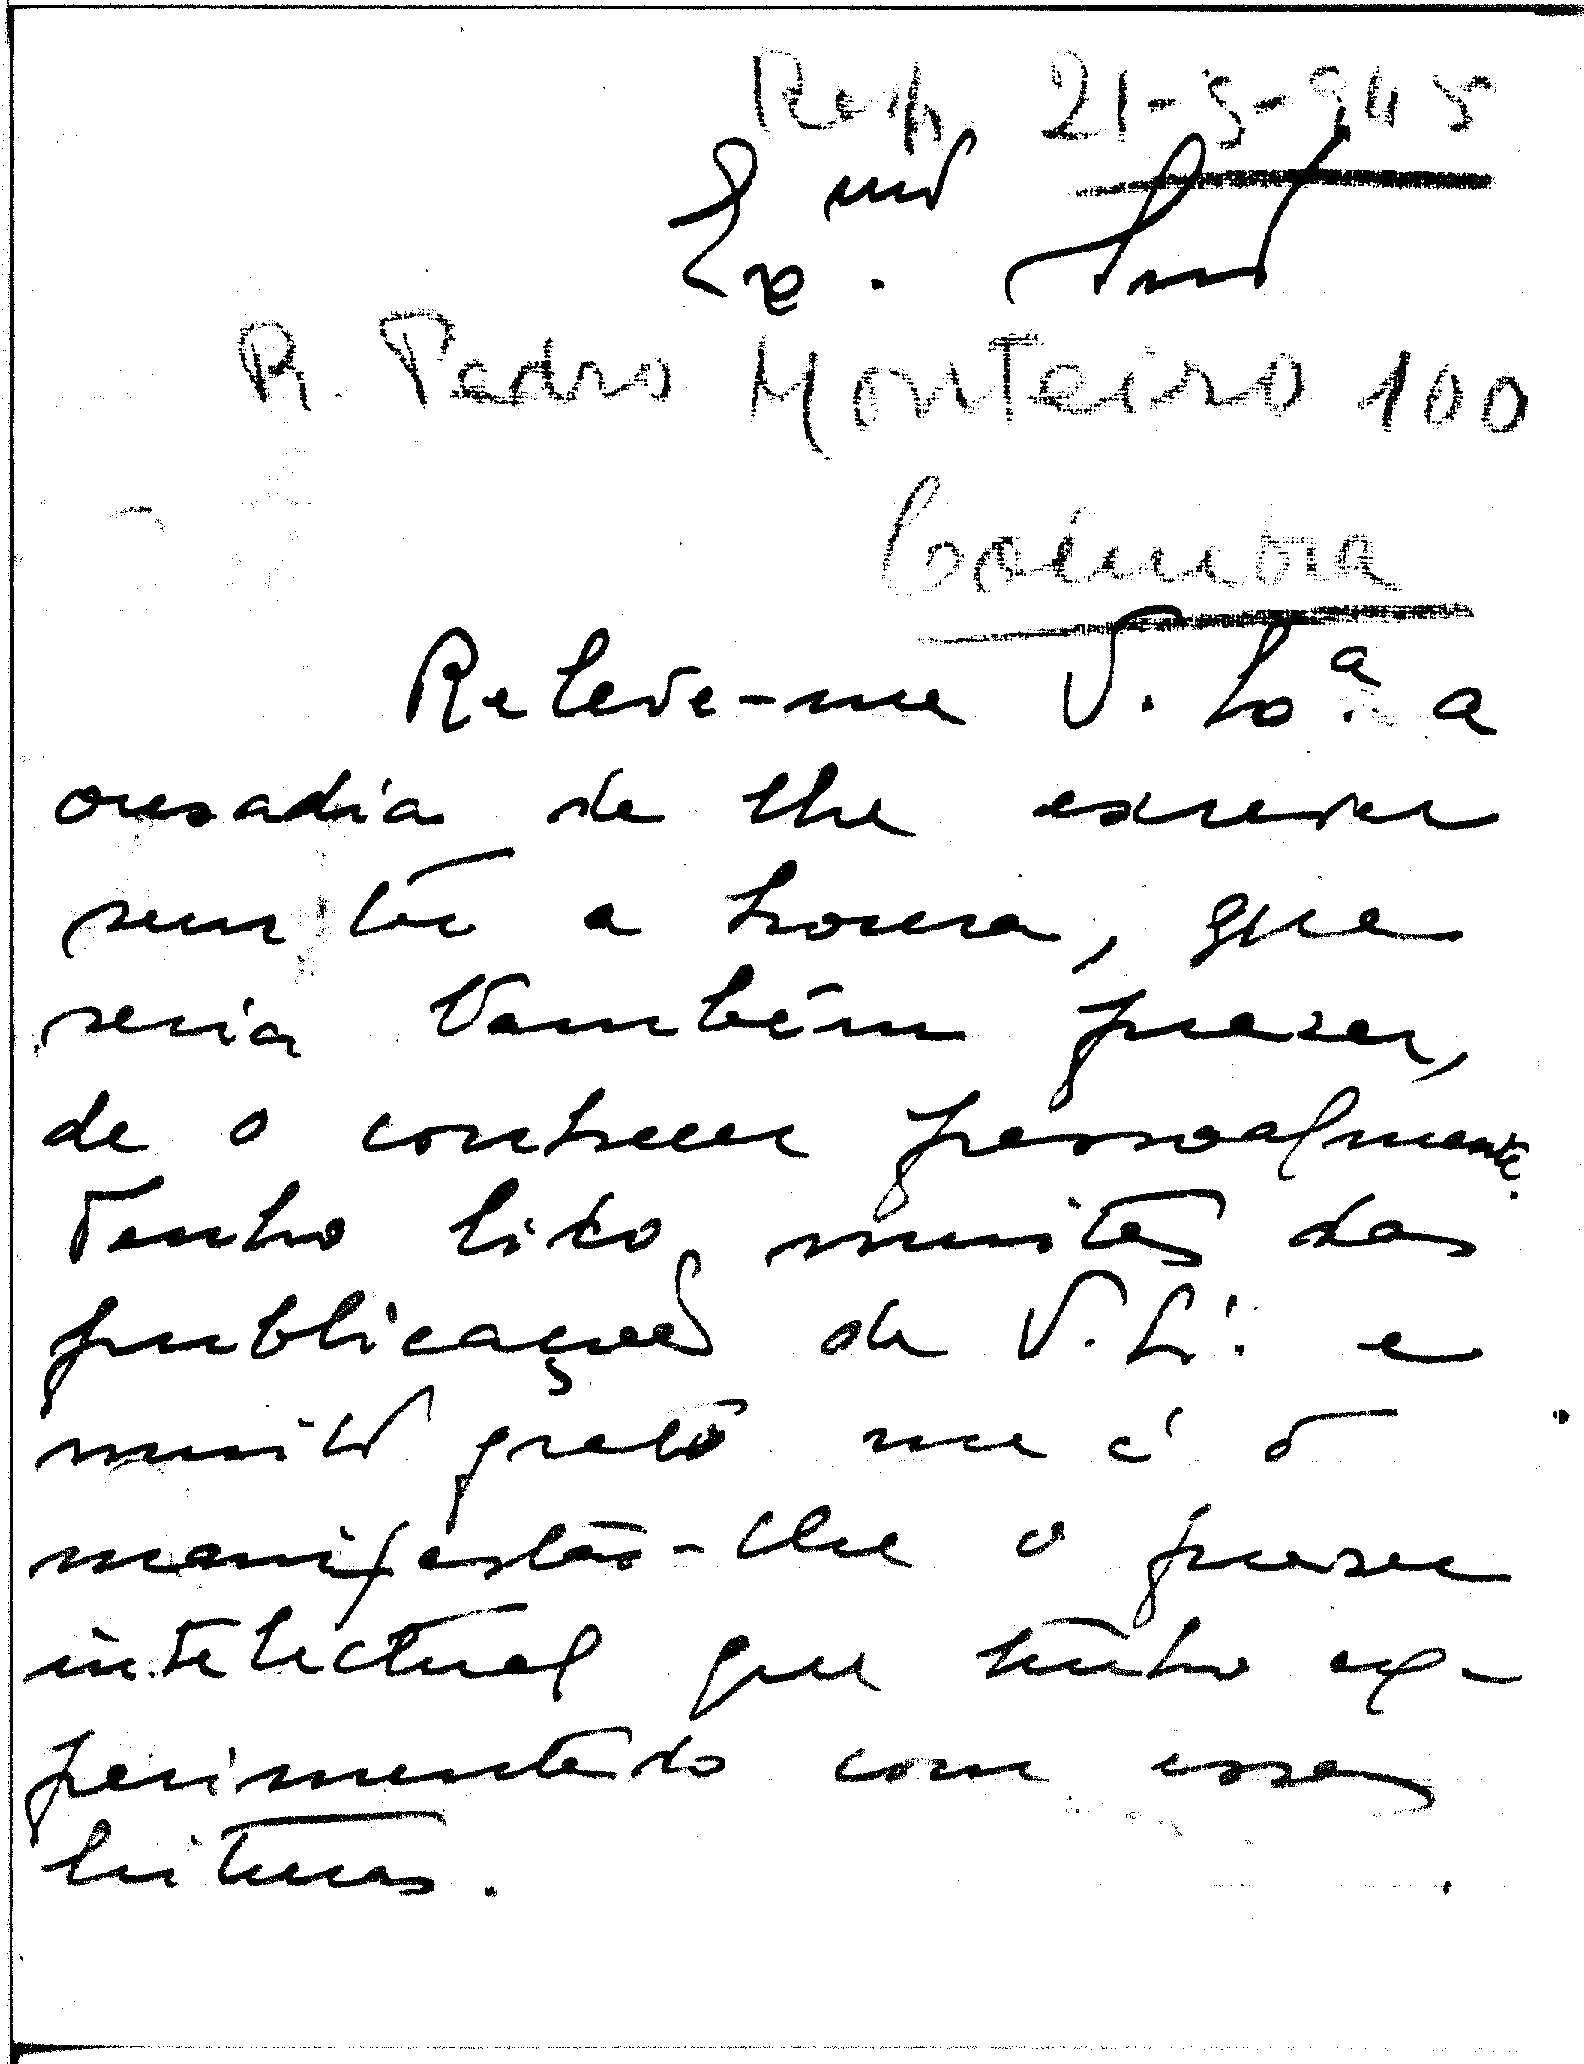 Resp. 21-5-945
Ex.mo Snr.
R. Pedro Monteiro 100
Coimbra
Releve-me V. Ex.ª a
ousadia de lhe escrever
sem ter a honra, que
seria também prazer,
de o conhecer pessoalmente.
Tenho lido muitas das
publicações de V. Ex. e
muito grato me é o
manifestar-lhe o prazer
intelectual que tenho ex-
perimentado com essas
leituras.